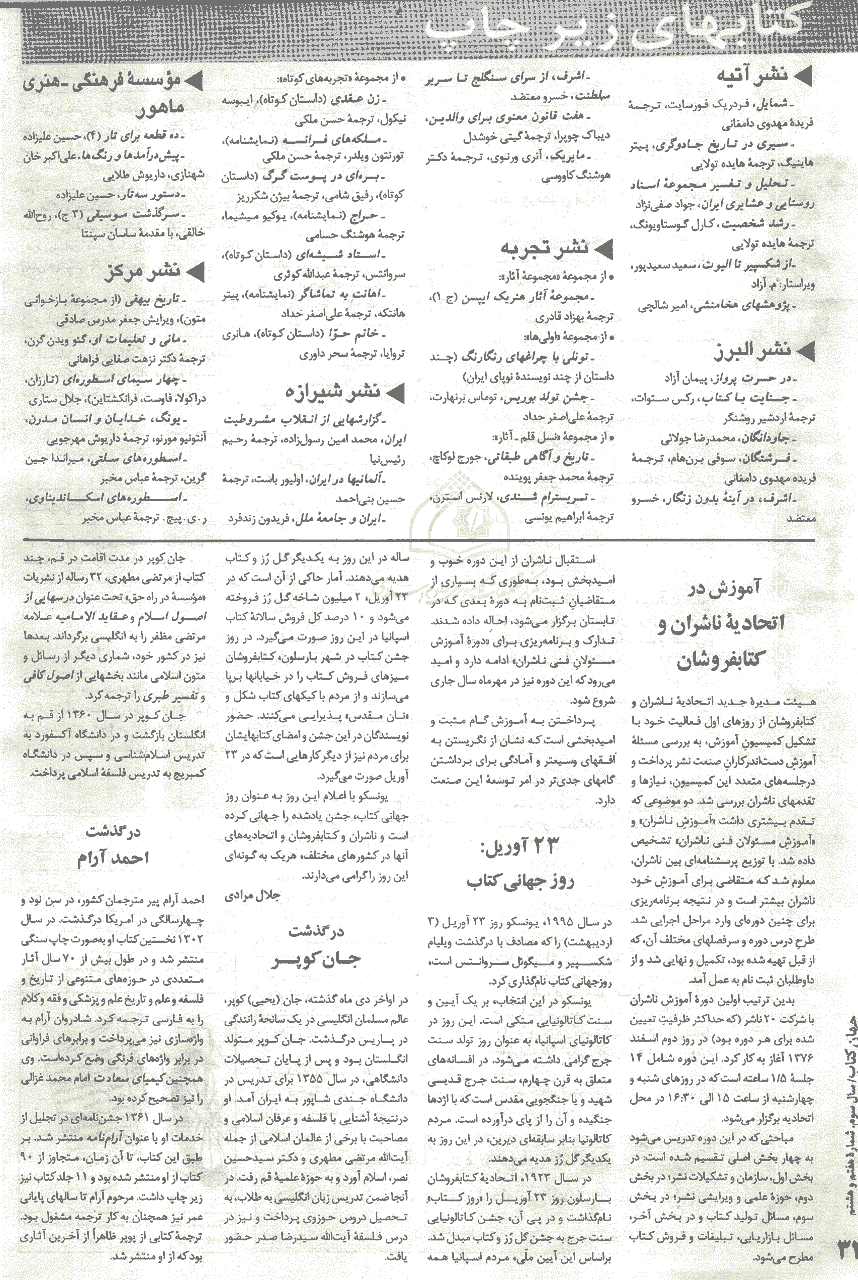 کتابهای زیر چاپ
نشر آتیه
ـ شمایل، فردریک فورسایت، ترجمهٔ
فریده مهدوی دامغانی
ـ سیری در تاریخ جادوگری، پیتر
هاینینگ، ترجمهٔ هایده تولایی
ـ تحلیل و تفسیر مجموعهٔ اسناد
روستایی و عشایری ایران، جواد صفی‌نژاد
ـ رشد شخصیت، کارل گوستاویونگ،
ترجمهٔ هایده تولایی
ـ از شکسپیر تا الیوت، سعید سعیدپور،
ویراستار: م. آزاد
ـ پژوهشهای هخامنشی، امیر شالچی
نشر البرز
ـ در حسرت پرواز، پیمان آزاد
ـ جنایت با کتاب، رکس ستوات،
ترجمهٔ اردشیر روشنگر
ـ جاودانگان، محمدرضا جولائی
ـ فرشتگان، سوفی برن‌هام، ترجمهٔ
فریده مهدوی دامغانی
ـ اشرف، در آینهٔ بدون زنگار، خسرو
معتضد
ـ اشرف، از سرای سنگلج تا سریر
سلطنت، خسرو معتضد
ـ هفت قانون معنوی برای والدین،
دیپاک چوپرا، ترجمهٔ گیتی خوشدل
ـ ماپریک، آنری ورنوی، ترجمهٔ دکتر
هوشنگ کاووسی
نشر تجربه
• از مجموعهٔ «مجموعهٔ آثار»:
ـ مجموعهٔ آثار هنریک ایبسن (ج ۱)،
ترجمهٔ بهزاد قادری
• از مجموعهٔ «اولی‌ها»:
ـ تونلی با چراغهای رنگارنگ (چند
داستان از چند نویسندهٔ نوپای ایران)
ـ جشن تولد بوریس، توماس برنهارت،
ترجمهٔ علی‌اصغر حداد
• از مجموعهٔ «نسل قلم ـ آثار»:
ـ تاریخ و آگاهی طبقاتی، جورج لوکاچ،
ترجمهٔ محمد جعفر پوینده
ـ تریسترام شندی، لارنس استرن،
ترجمهٔ ابراهیم یونسی
• از مجموعهٔ «تجربه‌های کوتاه»:
ـ زن عقدی (داستان کوتاه)، ایبوسه
نیکول، ترجمهٔ حسن ملکی
ـ ملکه‌های فرانسه (نمایشنامه)،
تورنتون وایلدر، ترجمهٔ حسن ملکی
ـ بره‌ای در پوست گرگ (داستان
کوتاه)، رفیق شامی، ترجمهٔ بیژن شکرریز
ـ حراج (نمایشنامه)، یوکیو میشیما،
ترجمهٔ هوشنگ حسامی
ـ استاد شیشه‌ای (داستان کوتاه)،
سروانتس، ترجمهٔ عبدالله کوثری
ـ اهانت به تماشاگر (نمایشنامه)، پیتر
هانتکه، ترجمهٔ علی‌اصغر حداد
ـ خانم حوّا (داستان کوتاه)، هانری
تروایا، ترجمهٔ سحر داوری
نشر شیرازه
ـ گزارشهایی از انقلاب مشروطیت
ایران، محمد امین رسول‌زاده، ترجمهٔ رحیم
رئیس‌نیا
ـ آلمانیها در ایران، اولیور باست، ترجمهٔ
حسین بنی‌احمد
ـ ایران و جامعهٔ ملل، فریدون زندفرد
مؤسسهٔ فرهنگی ـ هنری
ماهور
ـ ده قطعه برای تار (۴)، حسین علیزاده
ـ پیش‌درآمدها و رنگ‌ها، علی‌اکبر خان
شهنازی، داریوش طلایی
ـ دستور سه‌تار، حسین علیزاده
ـ سرگذشت موسیقی (۳ ج)، روح‌الله
خالقی، با مقدمهٔ ساسان سپنتا
نشر مرکز
ـ تاریخ بیهقی (از مجموعهٔ بازخوانی
متون)، ویرایش جعفر مدرس صادقی
ـ مانی و تعلیمات او، گئو ویدن گرن،
ترجمهٔ دکتر نزهت صفایی فراهانی
ـ چهار سیمای اسطوره‌ای (تارزان،
دراکولا، فاوست، فرانکشتاین)، جلال ستاری
ـ یونگ، خدایان و انسان مدرن،
آنتونیو مورنو، ترجمهٔ داریوش مهرجویی
ـ اسطوره‌های سلتی، میراندا جین
گرین، ترجمهٔ عباس مخبر
ـ اسطوره‌های اسکاندیناوی،
ر.ی. پیچ. ترجمهٔ عباس مخبر
آموزش در
اتحادیهٔ ناشران و
کتابفروشان
هیئت مدیرهٔ جدید اتحادیهٔ ناشران و
کتابفروشان از روزهای اول فعالیت خود با
تشکیل کمیسیون آموزش، به بررسی مسئلهٔ
آموزش دست‌اندرکاران صنعت نشر پرداخت و
درجلسه‌های متعدد این کمیسیون، نیازها و
تقدمهای ناشران بررسی شد. دو موضوعی که
تقدم بیشتری داشت «آموزش ناشران» و
«آموزش مسئولان فنی ناشران» تشخیص
داده شد. با توزیع پرسشنامه‌ای بین ناشران،
معلوم شد که متقاضی برای آموزش خود
ناشران بیشتر است و در نتیجه برنامه‌ریزی
برای چنین دوره‌ای وارد مراحل اجرایی شد.
طرح درس دوره و سرفصلهای مختلف آن، که
از قبل تهیه شده بود، تکمیل و نهایی شد و از
داوطلبان ثبت نام به عمل آمد.
بدین ترتیب اولین دورهٔ آموزش ناشران
با شرکت ۲۰ ناشر (که حداکثر ظرفیت تعیین
شده برای هر دوره بود) در روز دوم اسفند
۱۳۷۶ آغاز به کار کرد. این دوره شامل ۱۴
جلسهٔ ۱/۵ ساعته است که در روزهای شنبه و
چهارشنبه از ساعت ۱۵ الی ۱۶:۳۰ در محل
اتحادیه برگزار می‌شود.
مباحثی که در این دوره تدریس می‌شود
به چهار بخش اصلی تقسیم شده است: در
بخش اول، سازمان و تشکیلات نشر؛ در بخش
دوم، حوزهٔ علمی و ویرایشی نشر؛ در بخش
سوم، مسائل تولید کتاب و در بخش آخر،
مسائل بازاریابی، تبلیغات و فروش کتاب
مطرح می‌شود.
استقبال ناشران از این دوره خوب و
امیدبخش بود، به‌طوری که بسیاری از
متقاضیان ثبت‌نام به دورهٔ بعدی که در
تابستان برگزار می‌شود، احاله داده شدند.
تدارک و برنامه‌ریزی برای «دورهٔ آموزش
مسئولان فنی ناشران» ادامه دارد و امید
می‌رود که این دوره نیز در مهرماه سال جاری
شروع شود.
پرداختن به آموزش گام مثبت و
امیدبخشی است که نشان از نگریستن به
افقهای وسیعتر و آمادگی برای برداشتن
گامهای جدی‌تر در امر توسعهٔ این صنعت
دارد.
۲۳ آوریل:
روز جهانی کتاب
در سال ۱۹۹۵، یونسکو روز ۲۳ آوریل (۳
اردیبهشت) را که مصادف با درگذشت ویلیام
شکسپیر و میگوئل سروانتس است،
روزجهانی کتاب نام‌گذاری کرد.
یونسکو در این انتخاب، بر یک آیین و
سنت کاتالونیایی متکی است. این روز در
کاتالونیای اسپانیا، به عنوان روز تولد سنت
جرج گرامی داشته می‌شود. در افسانه‌های
متعلق به قرن چهارم، سنت جرج قدیسی
شهید و یا جنگجویی مقدس است که با اژدها
جنگیده و آن را از پای درآورده است. مردم
کاتالونیا بنابر سابقه‌ای دیرین، در این روز به
یکدیگر گل رُز هدیه می‌دهند.
در سال ۱۹۲۳، اتحادیهٔ کتابفروشان
بارسلون روز ۲۳ آوریل را «روز کتاب»
نام‌گذاشت و در پی آن، جشن کاتالونیایی
سنت جرج به جشن گل رُز و کتاب مبدل شد.
براساس این آیین ملّی، مردم اسپانیا همه
ساله در این روز به یکدیگر گل رُز و کتاب
هدیه می‌دهند. آمار حاکی از آن است که در
۲۳ آوریل، ۲ میلیون شاخه گل رُز فروخته
می‌شود و ۱۰ درصد کل فروش سالانهٔ کتاب
اسپانیا در این روز صورت می‌گیرد. در روز
جشن کتاب در شهر بارسلون، کتابفروشان
میزهای فروش کتاب را در خیابانها برپا
می‌سازند و از مردم با کیکهای کتاب شکل و
«نان مقدس» پذیرایی می‌کنند. حضور
نویسندگان در این جشن و امضای کتابهایشان
برای مردم نیز از دیگر کارهایی است که در ۲۳
آوریل صورت می‌گیرد.
یونسکو با اعلام این روز به عنوان روز
جهانی کتاب، جشن یادشده را جهانی کرده
است و ناشران و کتابفروشان و اتحادیه‌های
آنها در کشورهای مختلف، هریک به گونه‌ای
این روز را گرامی می‌دارند.
جلال مرادی
درگذشت
جان کوپر
در اواخر دی ماه گذشته، جان (یحیی) کوپر،
عالم مسلمان انگلیسی در یک سانحهٔ رانندگی
در پاریس درگذشت. جان کوپر متولد
انگلستان بود و پس از پایان تحصیلات
دانشگاهی، در سال ۱۳۵۵ برای تدریس در
دانشگاه جندی شاپور به ایران آمد. او
درنتیجهٔ آشنایی با فلسفه و عرفان اسلامی و
مصاحبت با برخی از عالمان اسلامی از جمله
آیت‌الله مرتضی مطهری و دکتر سیدحسین
نصر، اسلام آورد و به حوزهٔ علمیهٔ قم رفت. در
آنجا ضمن تدریس زبان انگلیسی به طلاب، به
تحصیل دروس حوزوی پرداخت و نیز در
درس فلسفهٔ آیت‌الله سیدرضا صدر حضور
یافت.
جان کوپر در مدت اقامت در قم، چند
کتاب از مرتضی مطهری، ۳۲ رساله از نشریات
«مؤسسهٔ در راه حق» تحت عنوان درسهایی از
اصول اسلام و عقاید الامامیه علامه
مرتضی مظفر را به انگلیسی برگرداند. بعدها
نیز در کشور خود، شماری دیگر از رسائل و
متون اسلامی مانند بخشهایی از اصول کافی
و تفسیر طبری را ترجمه کرد.
جان کوپر در سال ۱۳۶۰ از قم به
انگلستان بازگشت و در دانشگاه آکسفورد به
تدریس اسلام‌شناسی و سپس در دانشگاه
کمبریج به تدریس فلسفهٔ اسلامی پرداخت.
درگذشت
احمد آرام
احمد آرام پیر مترجمان کشور، در سن نود و
چهارسالگی در امریکا درگذشت. در سال
۱۳۰۲ نخستین کتاب او به‌صورت چاپ سنگی
منتشر شد و در طول بیش از ۷۰ سال آثار
متعددی در حوزه‌های متنوعی از تاریخ و
فلسفه و علم و تاریخ علم و پزشکی و فقه و کلام
را به فارسی ترجمه کرد. شادروان آرام به
واژه‌سازی نیز می‌پرداخت و برابرهای فراوانی
در برابر واژه‌های فرنگی وضع کرده‌است. وی
همچنین کیمیای سعادت امام محمد غزالی
را نیز تصحیح کرده بود.
در سال ۱۳۶۱ جشن‌نامه‌ای در تجلیل از
خدمات او با عنوان آرام‌نامه منتشر شد. بر
طبق این کتاب، تا آن زمان، متجاوز از ۹۰
کتاب از او منتشر شده بود و ۱۱ جلد کتاب نیز
زیر چاپ داشت. مرحوم آرام تا سالهای پایانی
عمر نیز همچنان به کار ترجمه مشغول بود.
ترجمهٔ کتابی از پوپر ظاهراً از آخرین آثاری
بود که از او منتشر شد.
جهان کتاب / سال سوم، شمارهٔ هفتم و هشتم